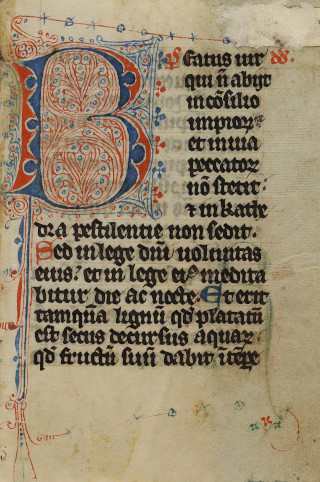 B Eatus uir
qui n̄ abijt
in cōsilio
impioꝝ
et in uia
peccatoꝝ
nō stetit
⁊ in kathe
dra pestilentie non sedit.
Sed in lege dn̄i uoluntas
eius: et in lege eiꝰ medita
bitur die ac nocte. Et erit
tamquā lignū qd̄ plātatū
est secus decursus aquaꝝ
qd̄ fructū suū dabit ī tp̄e